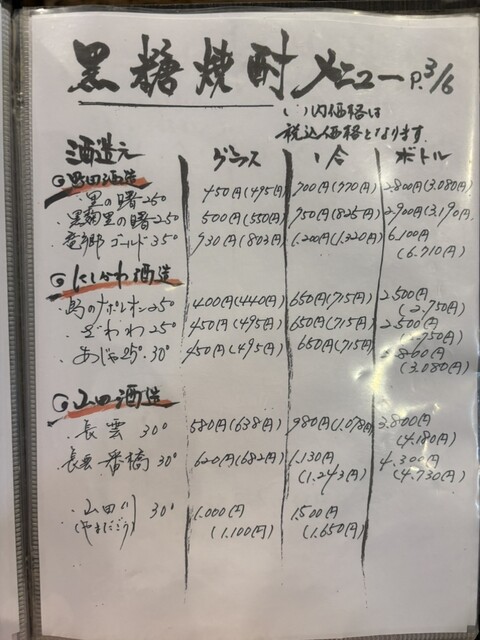 黒糖焼酎メニュー P.3/6
( )内価格は
税込価格となります
酒造元 グラス 1合 ボトル
町田酒造
・里の曙25° 450円(495円) 700円(770円) 2.800円(3.080円)
黒麹里の曙25° 500円(550円) 750円(825円) 2.900円(3.190円)
・竜郷ゴールド35° 730円(803円) 1.200円(1.320円) 6.100円
(6.710円)
にしかわ酒造
・島のナポレオン25° 400円(440円) 650円(715円) 2.500円
(2.750円)
・ざわわ25° 450円(495円) 650円(715円) 2.500円
(2.750円)
・あじゃ25°.30° 450円(495円) 650円(715円) 2.800円
(3.080円)
山田酒造
・長雲 30° 580円(638円) 980円(1.078円) 3.800円
(4.180円)
長雲一番橋30° 620円(682円) 1.130円 4.300円
(1.243円) (4.730円)
・山田川 30° 1.000円 1.500円
(1.100円) (1.650円)